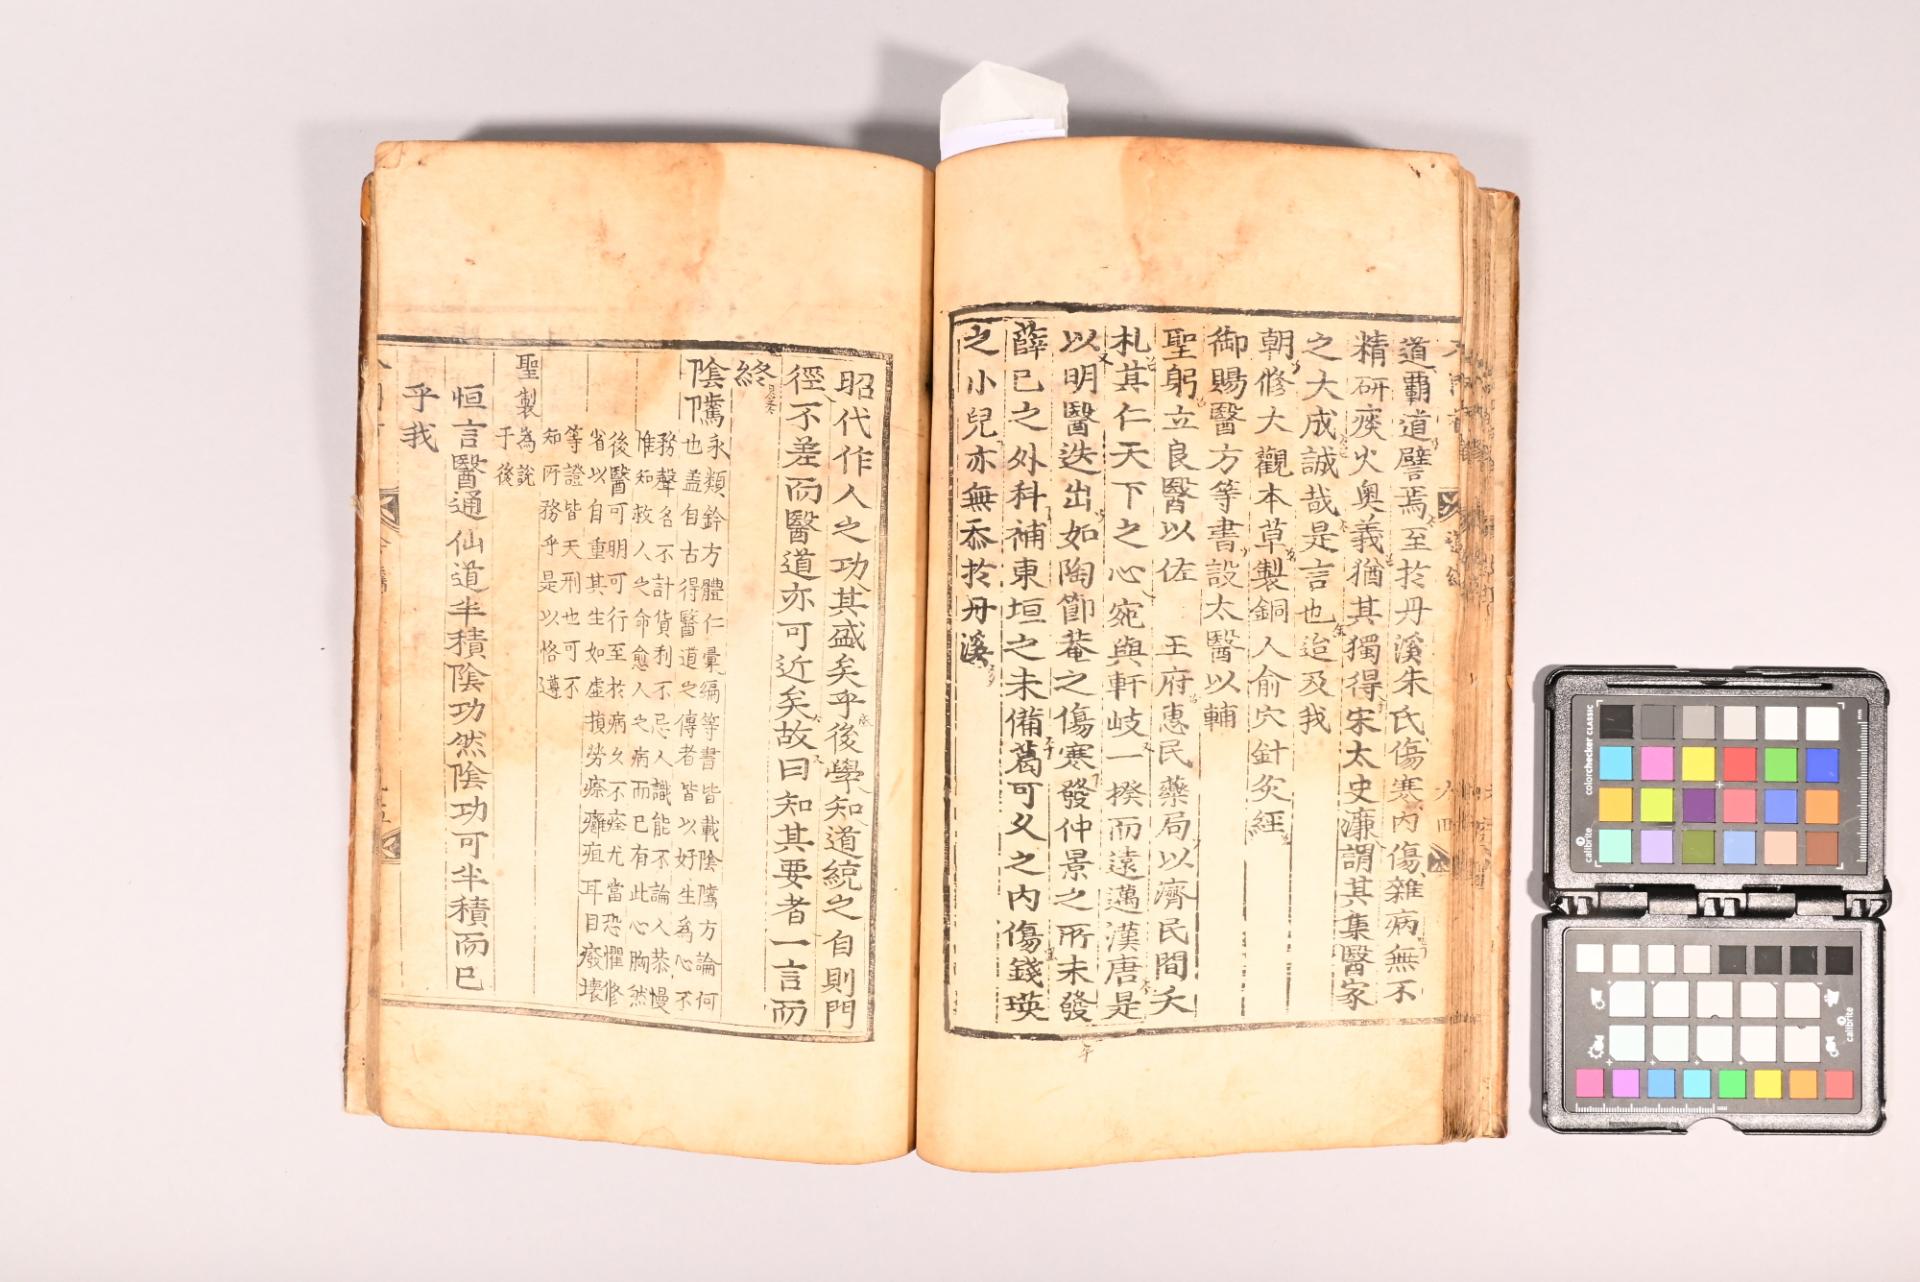 道覇道譬焉至扵丹溪朱氏傷寒內傷雜病無不
精研痰火奥義猶其獨得宋太史濂謂其集醫家
之大成誠哉是言也迨及我
朝修大觀本草製銅人俞穴針灸経
御賜醫方等書設太醫以輔
聖躬立良醫以佐 王府惠民藥局以濟民間夭
札其仁天下之心宛與軒岐一揆而遠邁漢唐是
以明醫迭出如陶節菴之傷寒發仲景之所未發
薛已之外科補東垣之未備葛可久之內傷錢瑛
之小兒亦無忝扵丹溪
昭代作人之功其盛矣乎後學知道統之自則門
徑不差而醫道亦可近矣故曰知其要者一言而
終
陰騭
永類鈐方體仁彙編等書皆載陰騭方論何
也盖自古得醫道之傳者皆以好生為心不
務聲名不計貨利不忌人識能不論人恭慢
惟知救人之命愈人之病而已有此心胸然
後醫可明可行至扵病久不痊尤當恐懼修
省以自重其生如虛損勞瘵癰疽耳目癈壞
等證皆天刑也可不
知所務乎是以恪遵
聖製為說
于後
恒言醫通仙道半積陰功然陰功可半積而已
乎我
calibrite
colorchecker CLASSIC
calibrite